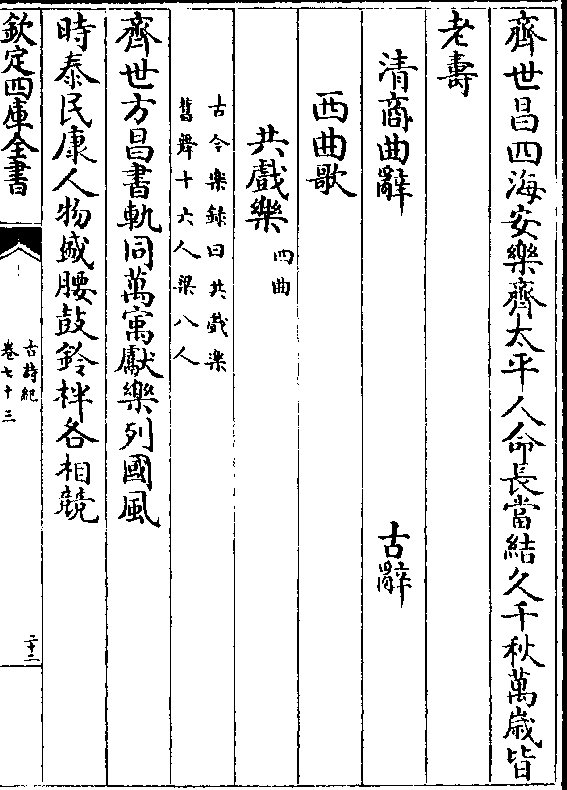 齊世昌四海安樂齊太平人命長當結久千秋萬歲皆
老壽
清商曲辭　古辭
西曲歌
共戲樂四曲
古今樂録曰共戲樂
舊舞十六人梁八人
齊世方昌書軌同萬㝢獻樂列國風
時泰民康人物盛腰鼓鈴柈各相競
欽定四庫全書
古詩紀
卷七十三
二十二